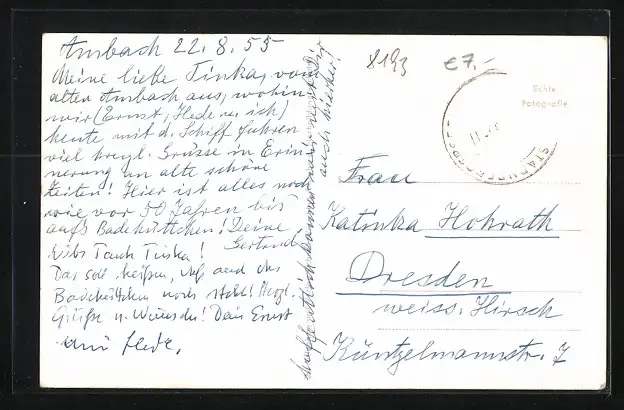 Ambach 22.8.55
Meine liebe Tinka, vom
alten Ambach aus, wohin
wir (Ernst, Hede u. ich)
heute mit d. Schiff fuhren
viel herzl. Grüsse in Erin-
nerung an alte schöne
Zeiten! Hier ist alles noch
wie vor 50 Jahren bis
aufs Badehüttchen! Deine
Gertrud.
Tinka!
Das soll heißen, daß auch das
Badehüttchen noch steht! Herzl.
Grüße u. Wünsche! Dein Ernst
und Hede.
auch hierher!
8193
€ 7.-
Echte
Fotografie
Frau
Katinka Hohrath
Dresden
weiss. Hirsch
Küntzelmannstr. 7